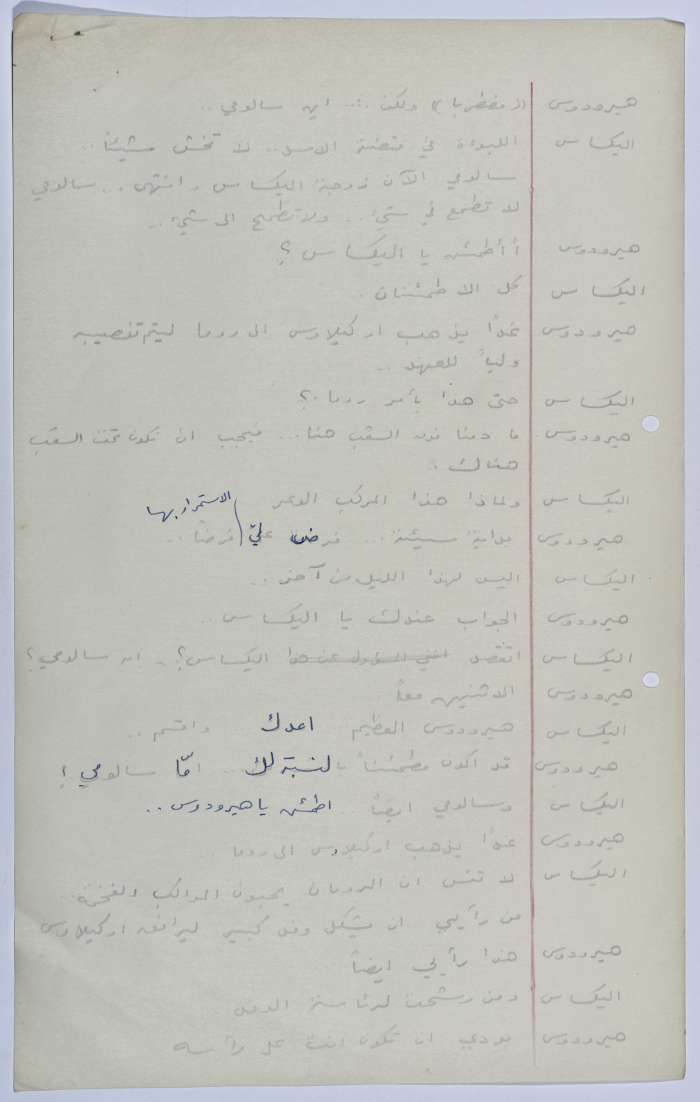 هيرودوس (( مضطربا )) ولكن ... اين سالومي ..
اليكساس اللبوة في قبضة الاسد .. لا تخش شيئاً ..
سالومي الآن زوجة اليكساس وانتهى ... سالومي
لا تطمع في شيء .. ولا تطمح الى شيء ..
هيرودوس أ أطمئن يا اليكساس ؟
اليكساس كل الاطمئنان ..
هيرودوس غداً يذهب اركيلاوس الى روما ليتم تنصيبه
ولياً للعهد ..
اليكساس حتى هذا بأمر روما ؟
هيرودوس ما دمنا فوق السقف هنا ... فيجب ان نكون تحت السقف
هناك .
اليكساس ولماذا هذا المركب الوعر
هيرودوس بداية سيئة ... فرض عليّ الاستمرار بها فرضاً ..
اليكساس اليس لهذا الليل من آخر ..
هيرودوس الجواب عندك يا اليكساس ..
اليكساس اتقصد اليكساس ؟ .. ام سالومي ؟
هيرودوس الاثنين معاً
اليكساس هيرودوس العظيم .. اعدك ... واقسم ..
هيرودوس قد اكون مطمئناً بالنسبة لك ... امّا سالومي ؟
اليكساس وسالومي ايضاً .. اطمئن يا هيرودوس ..
هيرودوس غداً يذهب اركيلاوس الى روما ..
اليكساس لا تنس ان الرومان يحبون المواكب الفخمة ..
من رأيي ان يشكل وفد كبير ليرافق اركيلاوس
هيرودوس هذا رأيي ايضاً
اليكساس ومن رشحت لرئاسة الوفد .
هيرودوس بودي ان تكون انت على رأسه